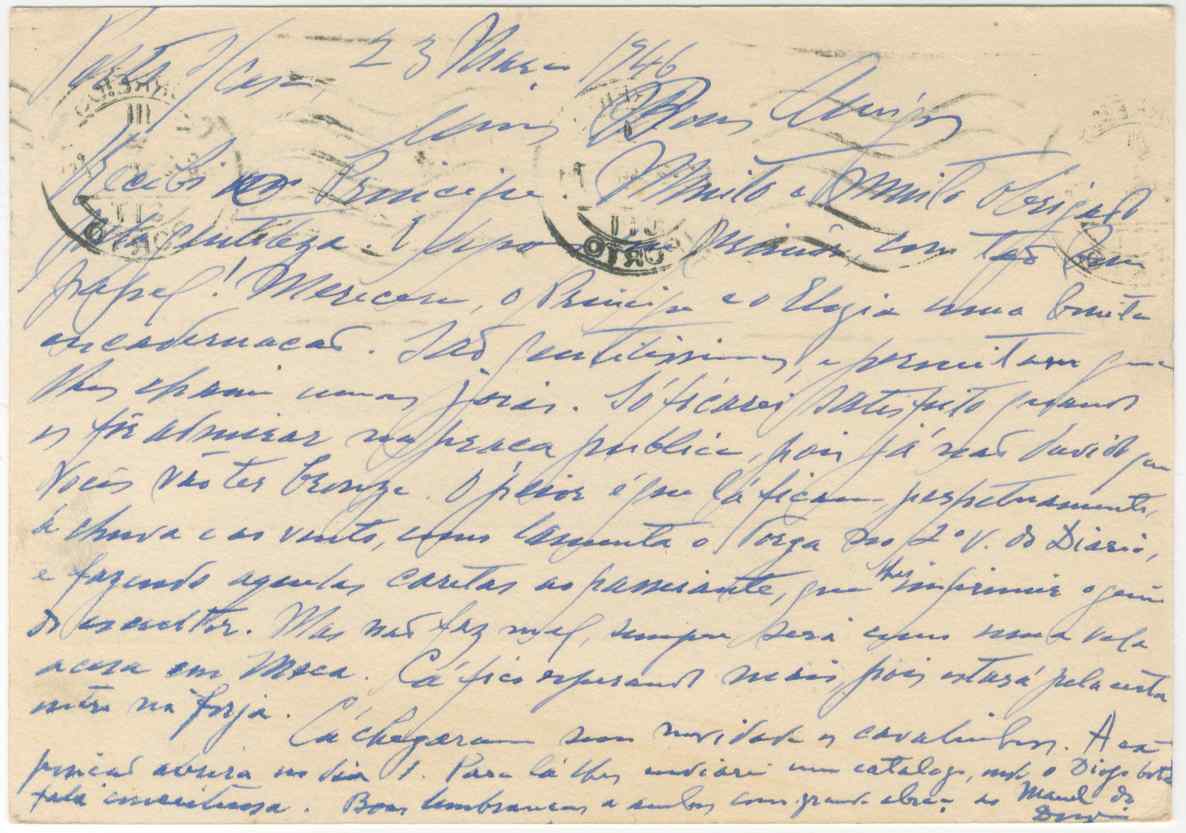 23 Março 1946
meus Bons Amigos
Recebi o Principe. Muito e muito obrigado
pela gentileza. E que primôr, com tão bom
papel! Merecem, o Principe e o Elogio uma bonita
encadernação. São gentilissimos, e permitam que
lhes chame umas joias. Só ficarei satisfeito quando
os fôr admirar na praça publica, pois já não duvido que
Vocês vão ter bronze. O peior é que lá ficam, perpetuamente,
à chuva e ao vento, como lamenta o Torga no 2º V. do Diario,
e fazendo aquelas caretas ao passeante, que lhes imprimir o genio
do escultor. Mas não faz mal, sempre será como uma vela
acesa em Meca. Cá fico esperando mais, pois estará pela certa
outro na forja.
Cá chegaram sem novidade os cavalinhos. A ex-
posição abrirá no dia 1. Para lá lhes enviarei um catalogo, onde o Diogo bota
fala. Boas lembranças a ambos com grande abraço do Manel de